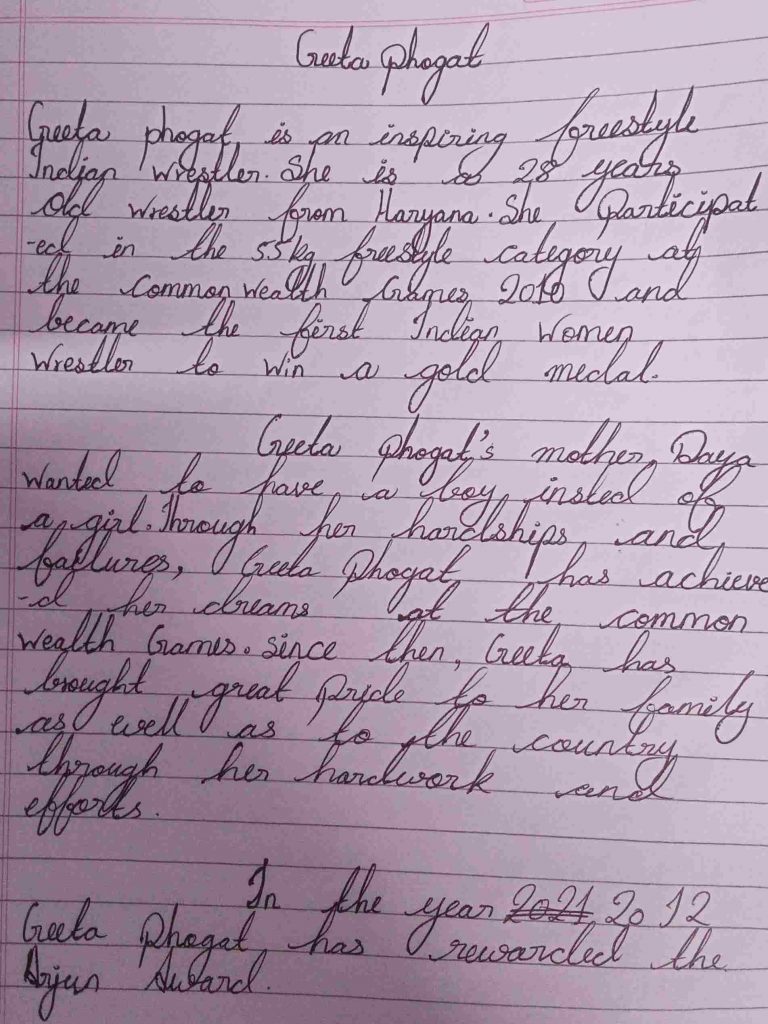 Geeta Phogat
Geeta phogat, is an inspiring freestyle
Indian Wrestler. She is a 28 years
old wrestler from Haryana. She Participat
-ed in the 55kg freestyle category at
the Common wealth Games, 2010 and
became the first Indian Women
Wrestler to win a gold medal.
Geeta Phogat's mother, Daya
Wanted to have a boy insted of
a girl. Through her hardships and
failures, Geeta Phogat has achieve
-d her dreams at the common
wealth Games. Since then, Geeta has
brought great Pride to her family
as well as to the country
through her hardwork and
efforts.
In the year 2021 2012
Geeta Phogat has rewarded the
Arjun Award.